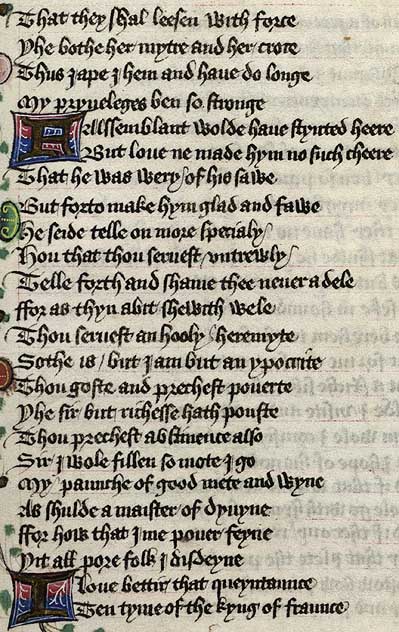 That they shal leesen with force
Yhe bothe her mytre and her croce
Thus jape j hem and haue do longe
My pryueleges ben so stronge
Falssemblant wolde haue stynted heere
But loue ne made hym no such cheere
That he was wery / of his sawe
But forto make hym glad and fawe
He seide telle on more specialy /
Hou that thou seruest / vntrewly /
Telle forth and shame thee neuer a dele
ffor as thyn abit shewith wele
Thou seruest an hooly / heremyte
Sothe is / but j am but an ypocrite
Thou goste and prechest pouerte
Yhe sir but richesse hath pouste
Thou prechest abstinence also
Sir / j wole fillen so mote j go
My / paunche of good mete and wyne
As shulde a maister / of dyuyne
ffor how that j me pouer / feyne
Yit all pore folk j disdeyne
I loue bettir / that queyntaunce
Ten tyme of the kyng of fraunce